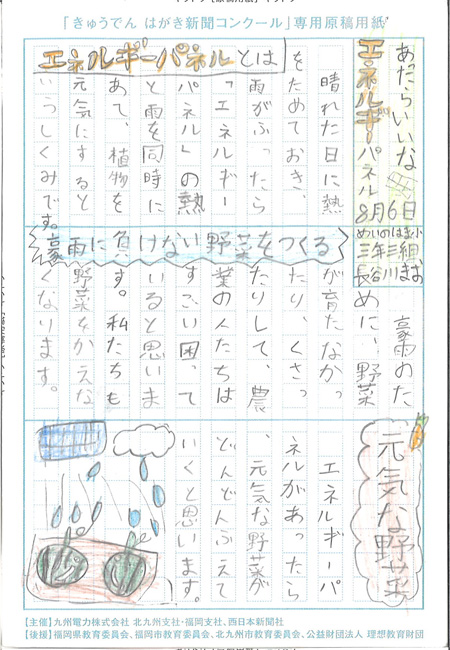 「きゅうでん はがき新聞コンクール」専用原稿用紙
あったらいいな
エネルギーパネル
8月6日
めいのはま小
三年三組
長谷川まお
エネルギーパネルとは
晴れた日に熱
をためておき、
雨がふったら
「エネルギー
パネル」の熱
と雨を同時に
あて、植物を
元気にすると
いうしくみです。
豪雨に負けない野菜をつくる
豪雨のた
めに、野菜
が育たなかっ
たり、くさっ
たりして、農
業の人たちは
すごい困って
いると思いま
す。私たちも
野菜をかえな
くなります。
元気な野菜
エネルギーパ
ネルがあったら
、元気な野菜が
どんどんふえて
いくと思います。
【主催】九州電力株式会社 北九州支社・福岡支社、西日本新聞社
【後援】福岡県教育委員会、福岡市教育委員会、北九州市教育委員会、公益財団法人 理想教育財団